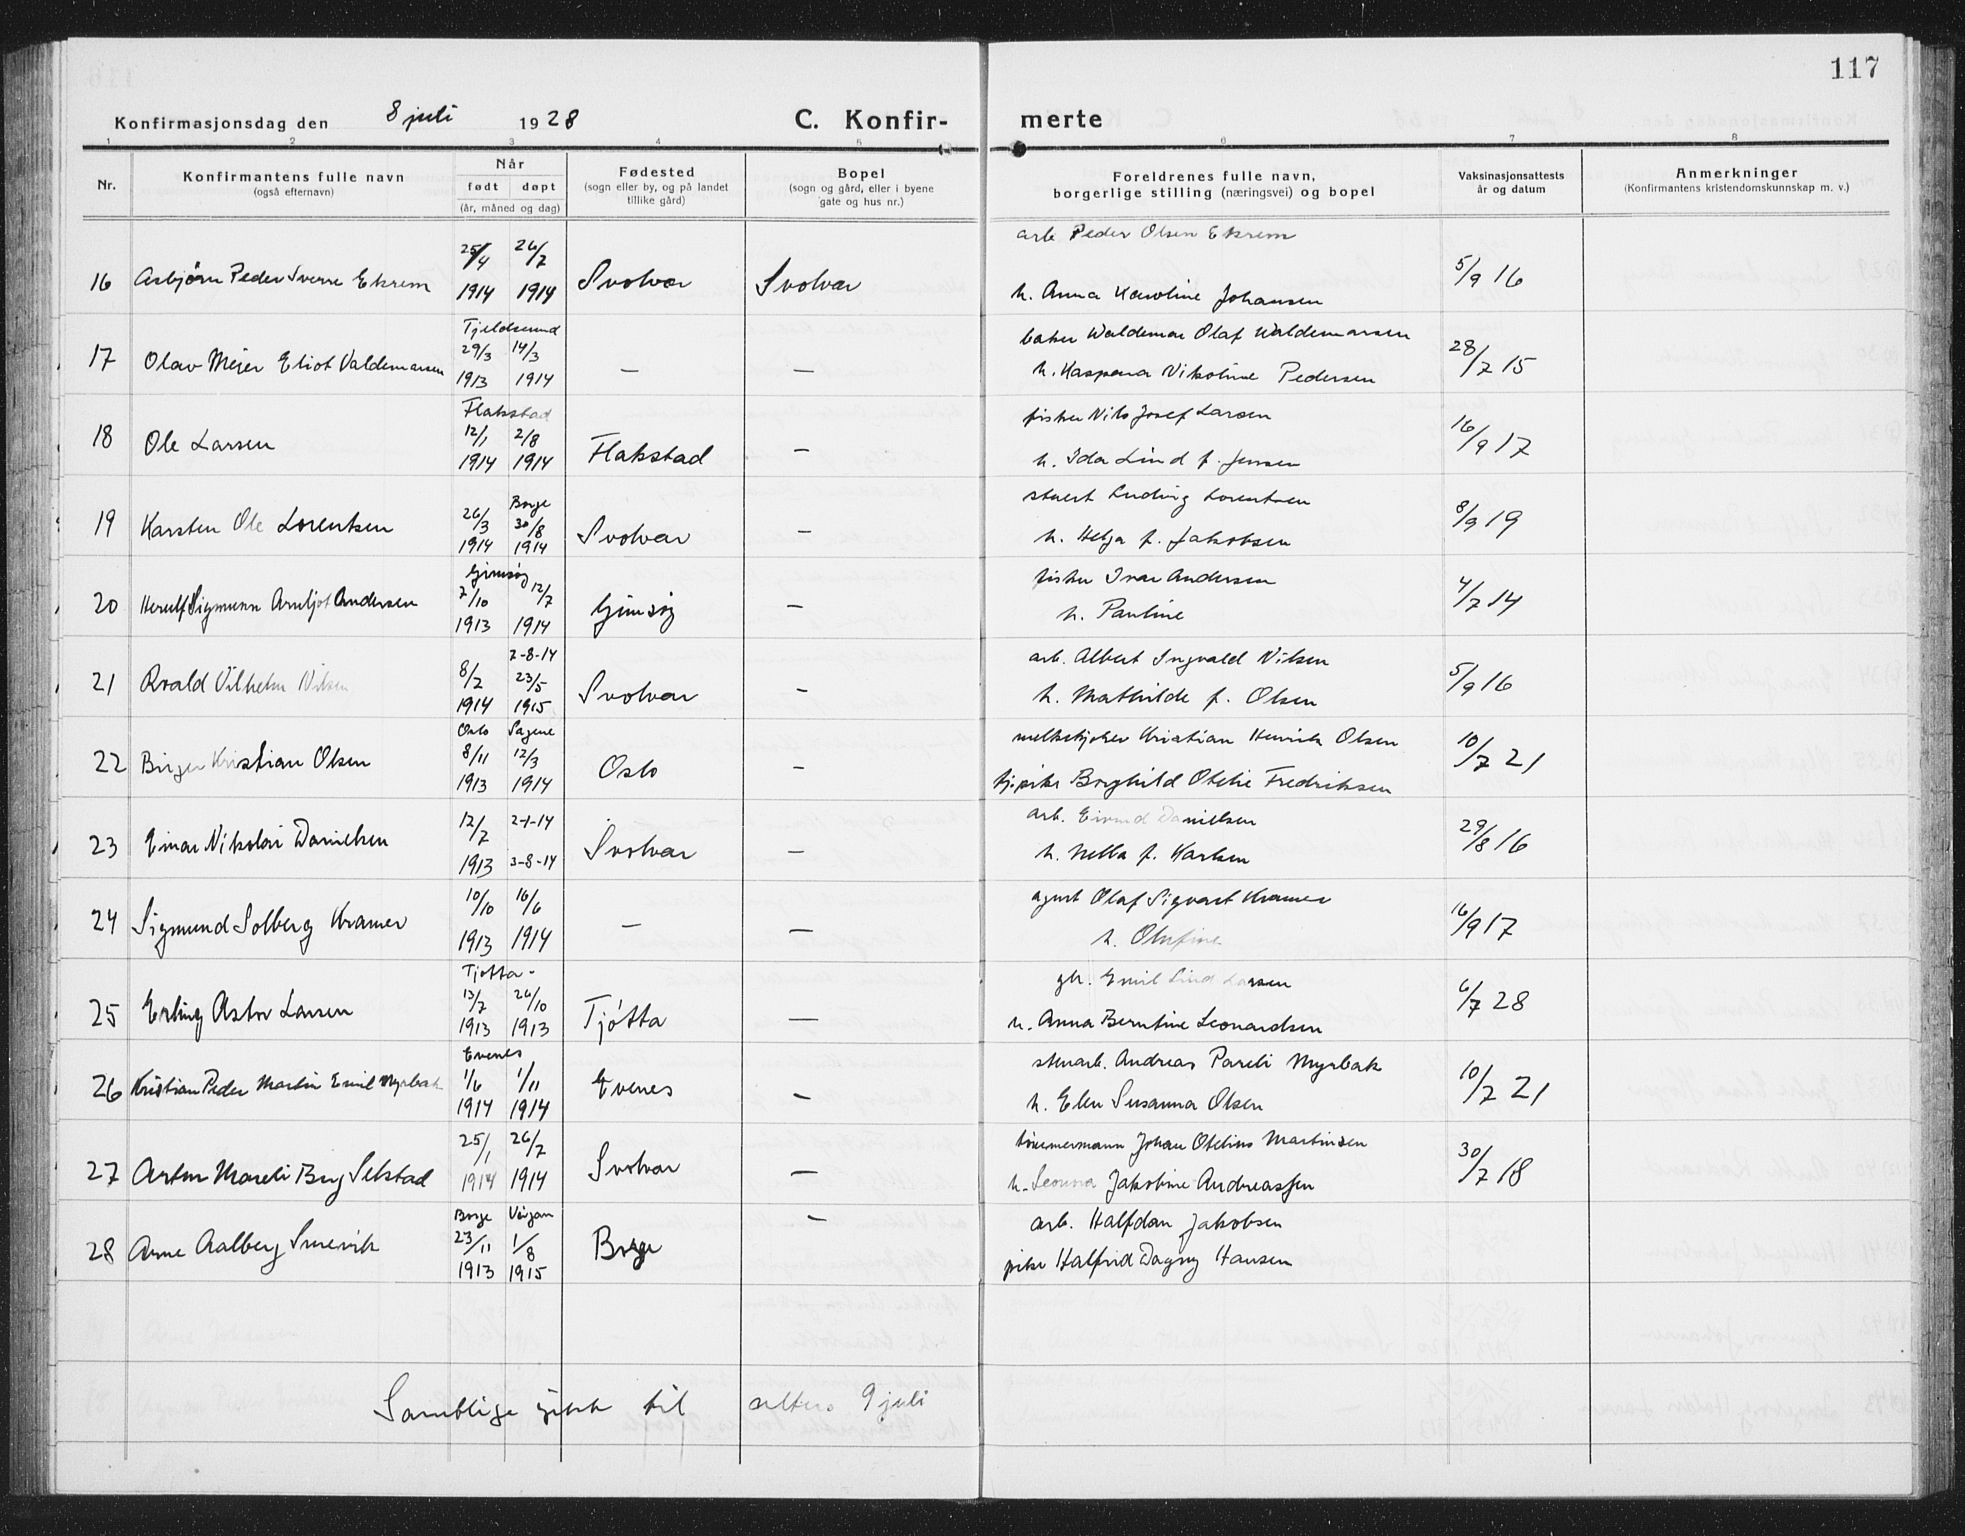 117
Konfirmasjonsdag den 8 juli 1928 C. Konfir- merte
1 2 3 4 5 6 7 8
Nr. Konfirmantens fulle navn (også efternavn) Når født døpt (år, måned og dag) Fødested (sogn eller by, og på landet tillike gård) Bopel (sogn og gård, eller i byene gate og hus nr.) Foreldrenes fulle navn, borgerlige stilling (næringsvei) og bopel Vaksinasjonsattests år og datum Anmerkninger (Konfirmantens kristendomskunnskap m. v.)
arb Peder Olsen Ekrem
16 Asbjörn Peder Sverre Ekrem 25/4 1914 26/7 1914 Svolvær Svolvær 5/9 16
h. Anna Karoline Johansen
Tjeldsund baker Waldemar Olaf Waldemarsen
17 Olav Meier Eliot Valdemarsen 29/3 1913 14/3 1914 — — 28/7 15
h. Kaspara Nikoline Pedersen
Flakstad fisker Nils Josef Larsen
18 Ole Larsen 12/1 1914 2/8 1914 Flakstad — 16/9 17
h. Ida Lind f. Jensen
Borge stuert Ludvig Lorentsen
19 Karsten Ole Lorentsen 26/3 1914 30/8 1914 Svolvær — 8/9 19
h. Helga f. Jakobsen
Gimsöy fisker Ivar Andersen
20 Herulf Sigmunn Arnljot Andersen 7/10 1913 12/7 1914 Gimsöy — 4/7 14
h. Pauline
2-8-14 arb. Albert Ingvald Nilsen
21 Roald Vilhelm Nilsen 8/2 1914 23/5 1915 Svolvær — 5/9 16
h. Mathilde f. Olsen
Oslo Sagene melkekjører Kristian Henrik Olsen
22 Birger Kristian Olsen 8/11 1913 12/3 1914 Oslo — 10/7 21
tj.pike Borghild Otelie Fredriksen
arb. Eivind Danielsen
23 Einar Nikolai Danielsen 12/7 1913 2-1-14 3-8-14 Svolvær — 29/8 16
h. Nella f. Karlsen
agent Olaf Sigvart Kramer
24 Sigmund Solberg Kramer 10/10 1913 16/6 1914 — — 16/9 17
h. Olufine
Tjøtta - gbr. Emil Lind Larsen
25 Erling Astor Larsen 13/7 1913 26/10 1913 Tjøtta — 6/7 28
h. Anna Berntine Leonardsen
Evenes stenarb. Andreas Pareli Myrbak
26 Kristian Peder Martin Emil Myrbak 1/6 1914 1/11 1914 Evenes — 10/7 21
h. Elen Susanna Olsen
tømmermann Johan Otelius Martinsen
27 Artur Mareli Berg Selstad 25/1 1914 26/7 1914 Svolvær — 30/7 18
h. Leonna Jakobine Andreassen
Borge Vågan — arb. Halfdan Jakobsen
28 Arne Aalberg Smevik 23/11 1913 1/8 1915 Borge
pike Halfrid Dagny Hansen
Samtlige gikk til alters 9 juli